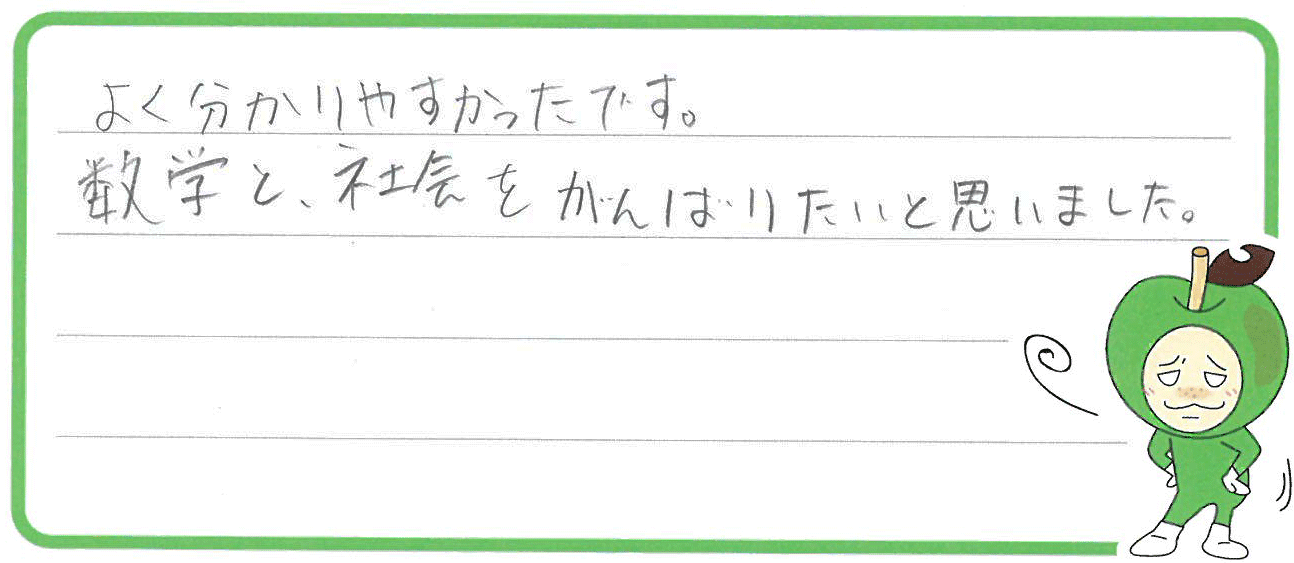 よく分かりやすかったです。
数学と、社会をがんばりたいと思いました。